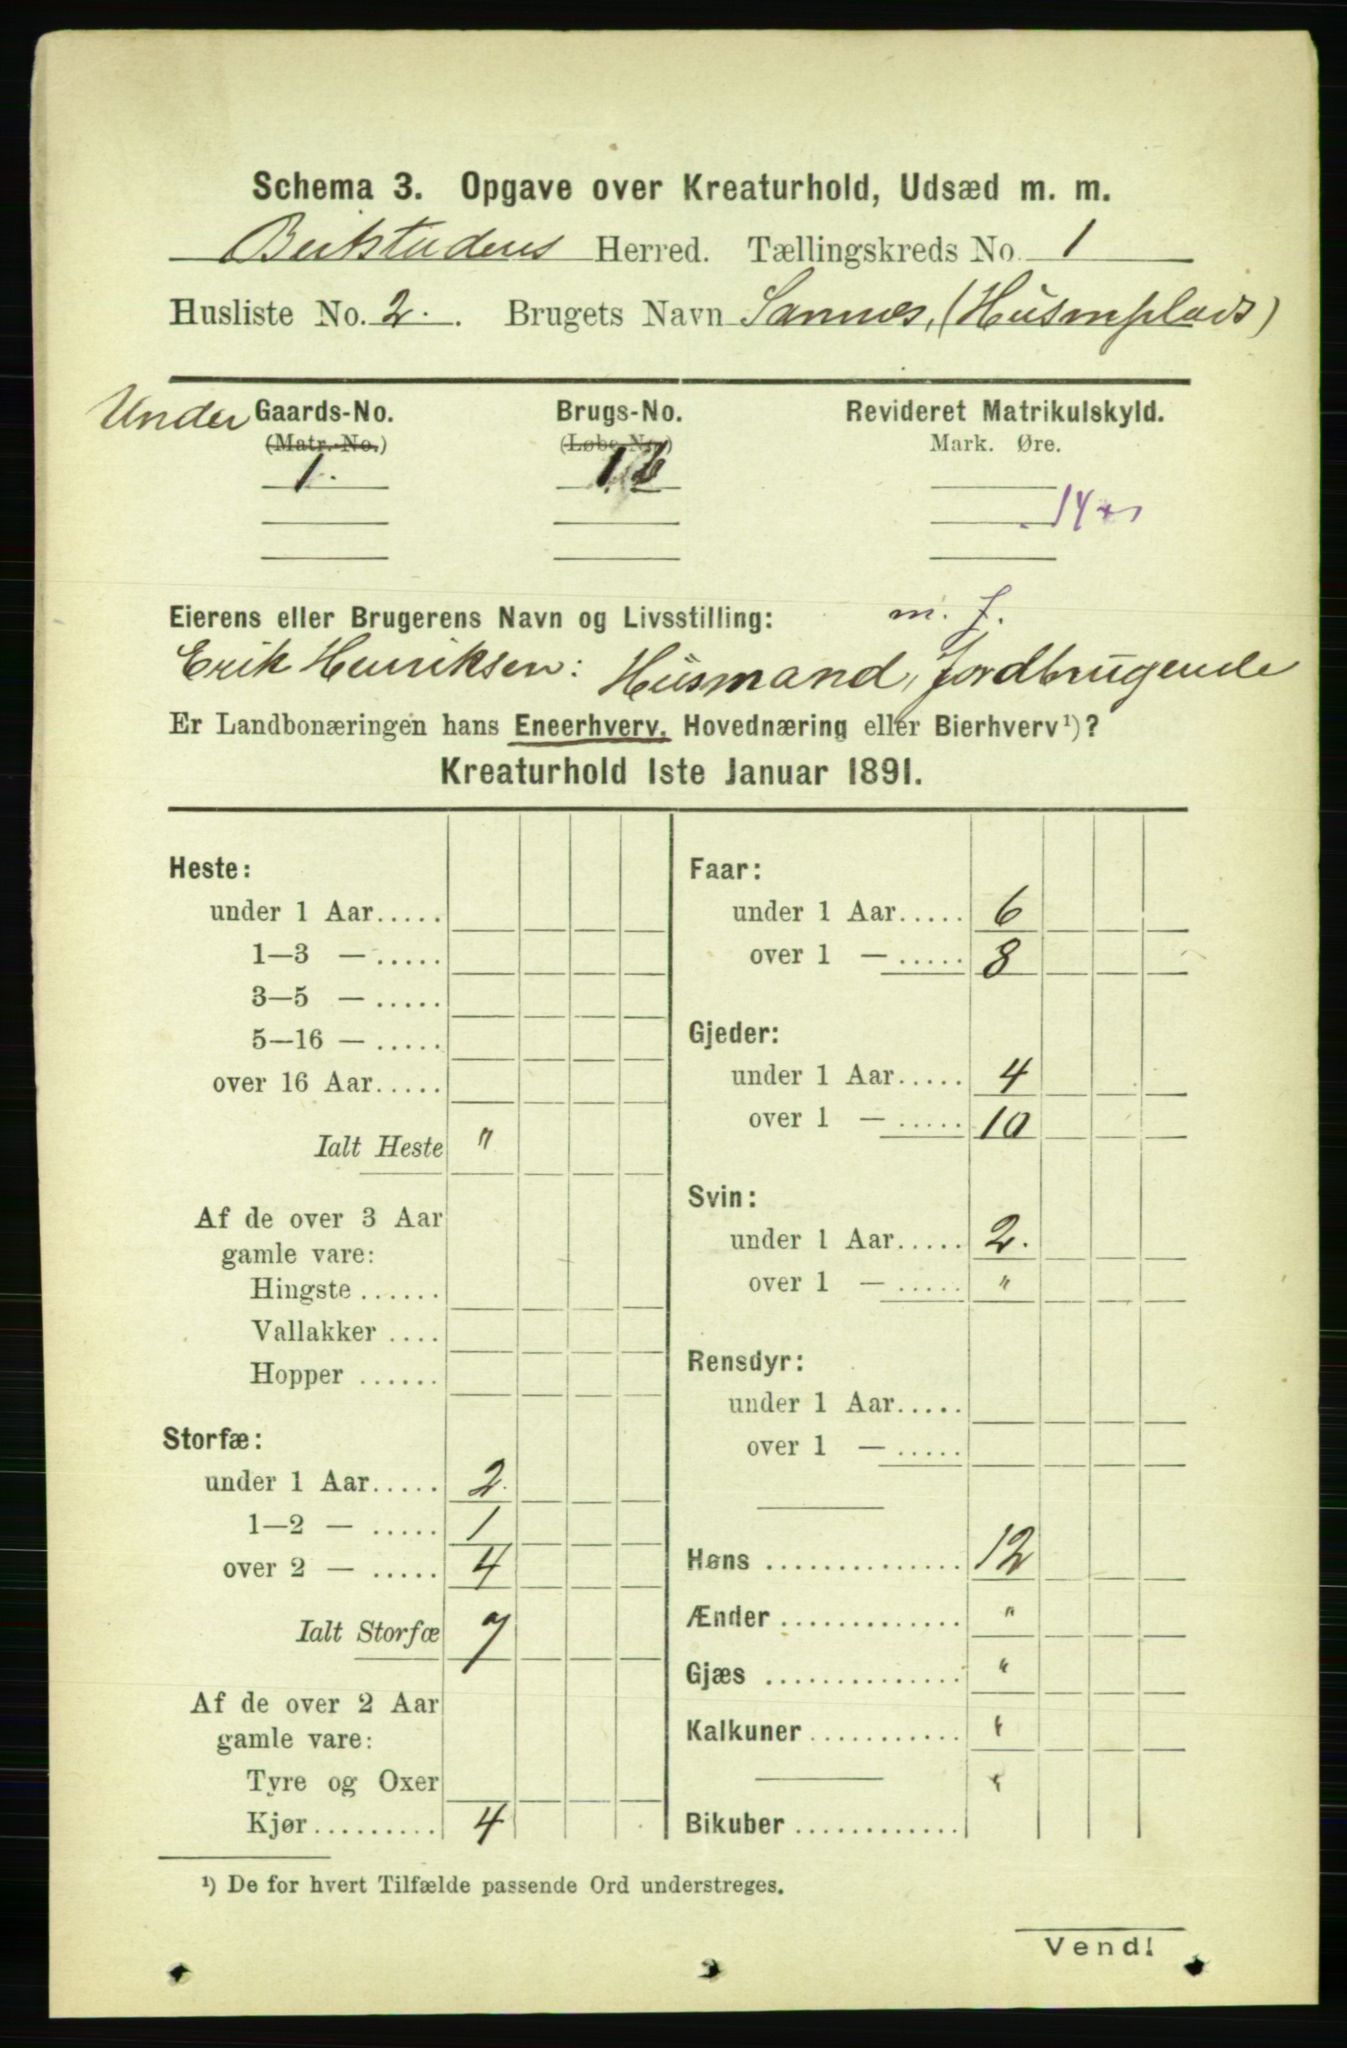 Schema 3. Opgave over Kreaturhold, Udsæd m. m.
Beitstadens Herred. Tællingskreds No. 1
Husliste No. 2. Brugets Navn Sannes, (Husmplads)
Under Gaards-No. Brugs-No. Revideret Matrikulskyld.
(Matr.-No.) (Løbe-No.) Mark. Øre.
1.
m. J.
Eierens eller Brugerens Navn og Livsstilling:
Erik Henriksen: Husmand, Jordbrugende
Er Landbonæringen hans Eneerhverv, Hovednæring eller Bierhverv¹)?
Kreaturhold 1ste Januar 1891.
Heste:
under 1 Aar.....
1—3 — .....
3—5 — .....
5—16 — .....
over 16 Aar.....
Ialt Heste "
Af de over 3 Aar
gamle vare:
Hingste ......
Vallakker ....
Hopper ......
Storfæ:
under 1 Aar..... 2.
1—2 — ..... 1
over 2 — ..... 4
Ialt Storfæ 7
Af de over 2 Aar
gamle vare:
Tyre og Oxer
Kjør......... 4
Faar:
under 1 Aar..... 6
over 1 — ..... 8
Gjeder:
under 1 Aar..... 4
over 1 — ..... 10
Svin:
under 1 Aar..... 2.
over 1 — ..... "
Rensdyr:
under 1 Aar.....
over 1 — .....
Høns .............. 12
Ænder ............. "
Gjæs .............. "
Kalkuner ........... "
"
Bikuber ............
¹) De for hvert Tilfælde passende Ord understreges.
Vend!